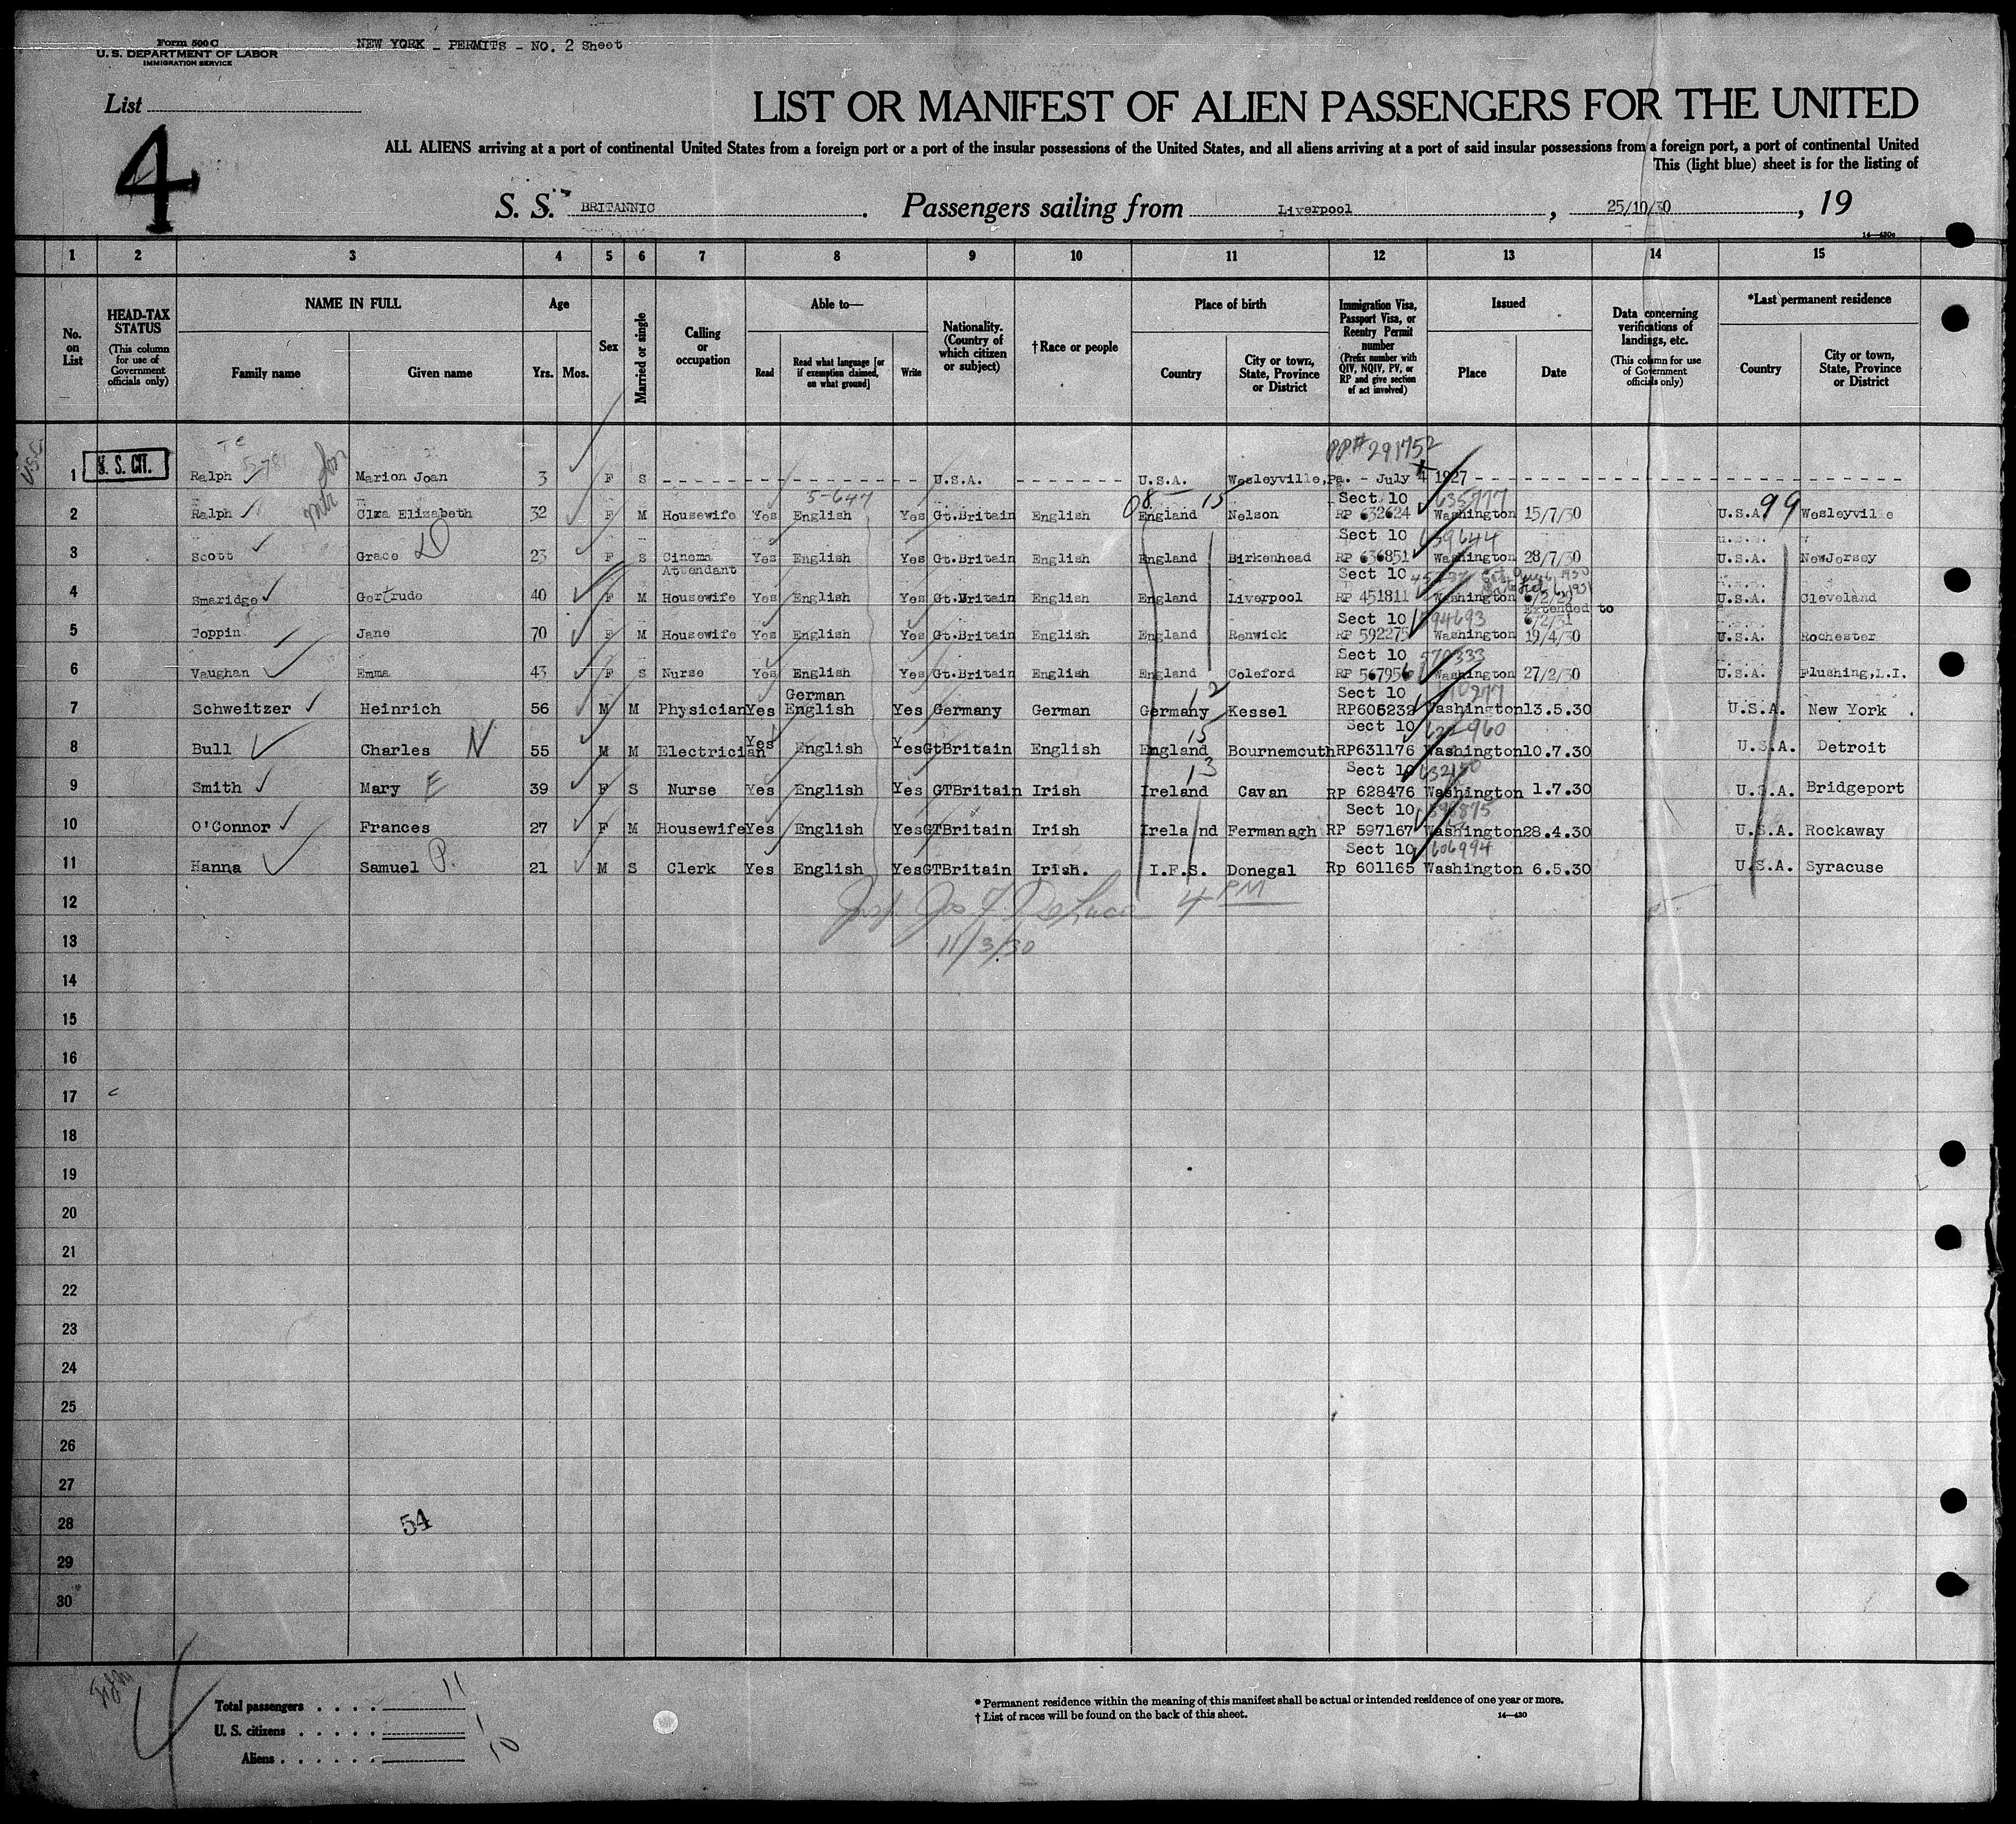 Form 500 C
U. S. DEPARTMENT OF LABOR
IMMIGRATION SERVICE
NEW YORK - PERMITS - NO. 2 Sheet
List
4
LIST OR MANIFEST OF ALIEN PASSENGERS FOR THE UNITED
ALL ALIENS arriving at a port of continental United States from a foreign port or a port of the insular possessions of the United States, and all aliens arriving at a port of said insular possessions from a foreign port, a port of continental United
This (light blue) sheet is for the listing of
S. S. BRITANNIC . Passengers sailing from Liverpool , 25/10/30 , 19
1 2 3 4 5 6 7 8 9 10 11 12 13 14 15
No. on List
HEAD-TAX STATUS (This column for use of Government officials only)
NAME IN FULL
Family name Given name
Age
Yrs. Mos.
Sex
Married or single
Calling or occupation
Able to—
Read Read what language [or if exemption claimed, on what ground] Write
Nationality. (Country of which citizen or subject)
†Race or people
Place of birth
Country City or town, State, Province or District
Immigration Visa, Passport Visa, or Reentry Permit number (Prefix number with QIV, NQIV, PV, or RP and give section of act involved)
Issued
Place Date
Data concerning verifications of landings, etc. (This column for use of Government officials only)
*Last permanent residence
Country City or town, State, Province or District
PP# 291752
USC 1 U. S. CIT. Ralph Marion Joan 3 F S U.S.A. U.S.A. Wesleyville, Pa. - July 4 1927
5-647 08 15 Sect 10 635777
2 Ralph Clra Elizabeth 32 F M Housewife Yes English Yes Gt.Britain English England Nelson RP 632624 Washington 15/7/30 U.S.A 99 Wesleyville
Sect 10 639644
3 Scott Grace D 23 F S Cinema Attendant Yes English Yes Gt.Britain English England Birkenhead RP 636851 Washington 28/7/30 U.S.A. NewJersey
Sect 10
4 Smaridge Gertrude 40 F M Housewife Yes English Yes Gt.Britain English England Liverpool RP 451811 Washington U.S.A. Cleveland
Extended to
Sect 10 594693 6/2/31
5 Toppin Jane 70 F M Housewife Yes English Yes Gt.Britain English England Renwick RP 592275 Washington 19/4/30 U.S.A. Rochester
Sect 10 570333
6 Vaughan Emma 43 F S Nurse Yes English Yes Gt.Britain English England Coleford RP 567956 Washington 27/2/30 U.S.A. Flushing,L.I.
German 12 Sect 10
7 Schweitzer Heinrich 56 M M Physician Yes English Yes Germany German Germany Kessel RP606232 Washington 13.5.30 U.S.A. New York .
15 Sect 10
8 Bull Charles N 55 M M Electrician Yes English Yes GtBritain English England Bournemouth RP631176 Washington 10.7.30 U.S.A. Detroit
13 Sect 10 632150
9 Smith Mary E 39 F S Nurse Yes English Yes GTBritain Irish Ireland Cavan RP 628476 Washington 1.7.30 U.S.A. Bridgeport
Sect 10
10 O'Connor Frances 27 F M Housewife Yes English Yes GTBritain Irish Irela nd Fermanagh RP 597167 Washington 28.4.30 U.S.A. Rockaway
Sect 10 606994
11 Hanna Samuel P. 21 M S Clerk Yes English Yes GTBritain Irish. I.F.S. Donegal Rp 601165 Washington 6.5.30 U.S.A. Syracuse
12 4 PM
13 11/3/30
14
15
16
17
18
19
20
21
22
23
24
25
26
27
28 54
29
30
Total passengers . . . . 11
U. S. citizens . . . . . 1
Aliens . . . . . . 10
* Permanent residence within the meaning of this manifest shall be actual or intended residence of one year or more.
† List of races will be found on the back of this sheet. 14—430